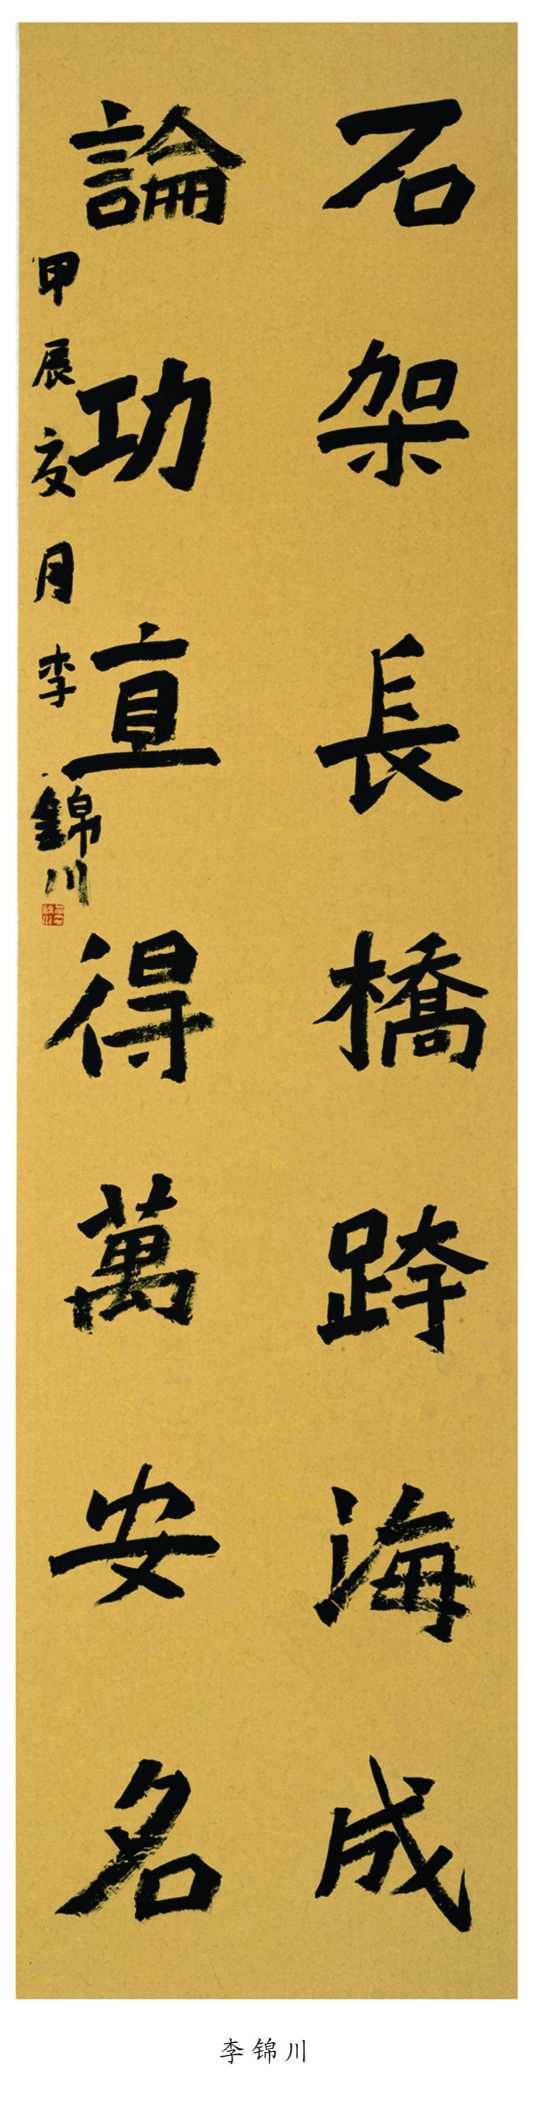 石架長橋跨海成
論功直得萬安名
甲辰亥月李錦川
李锦川